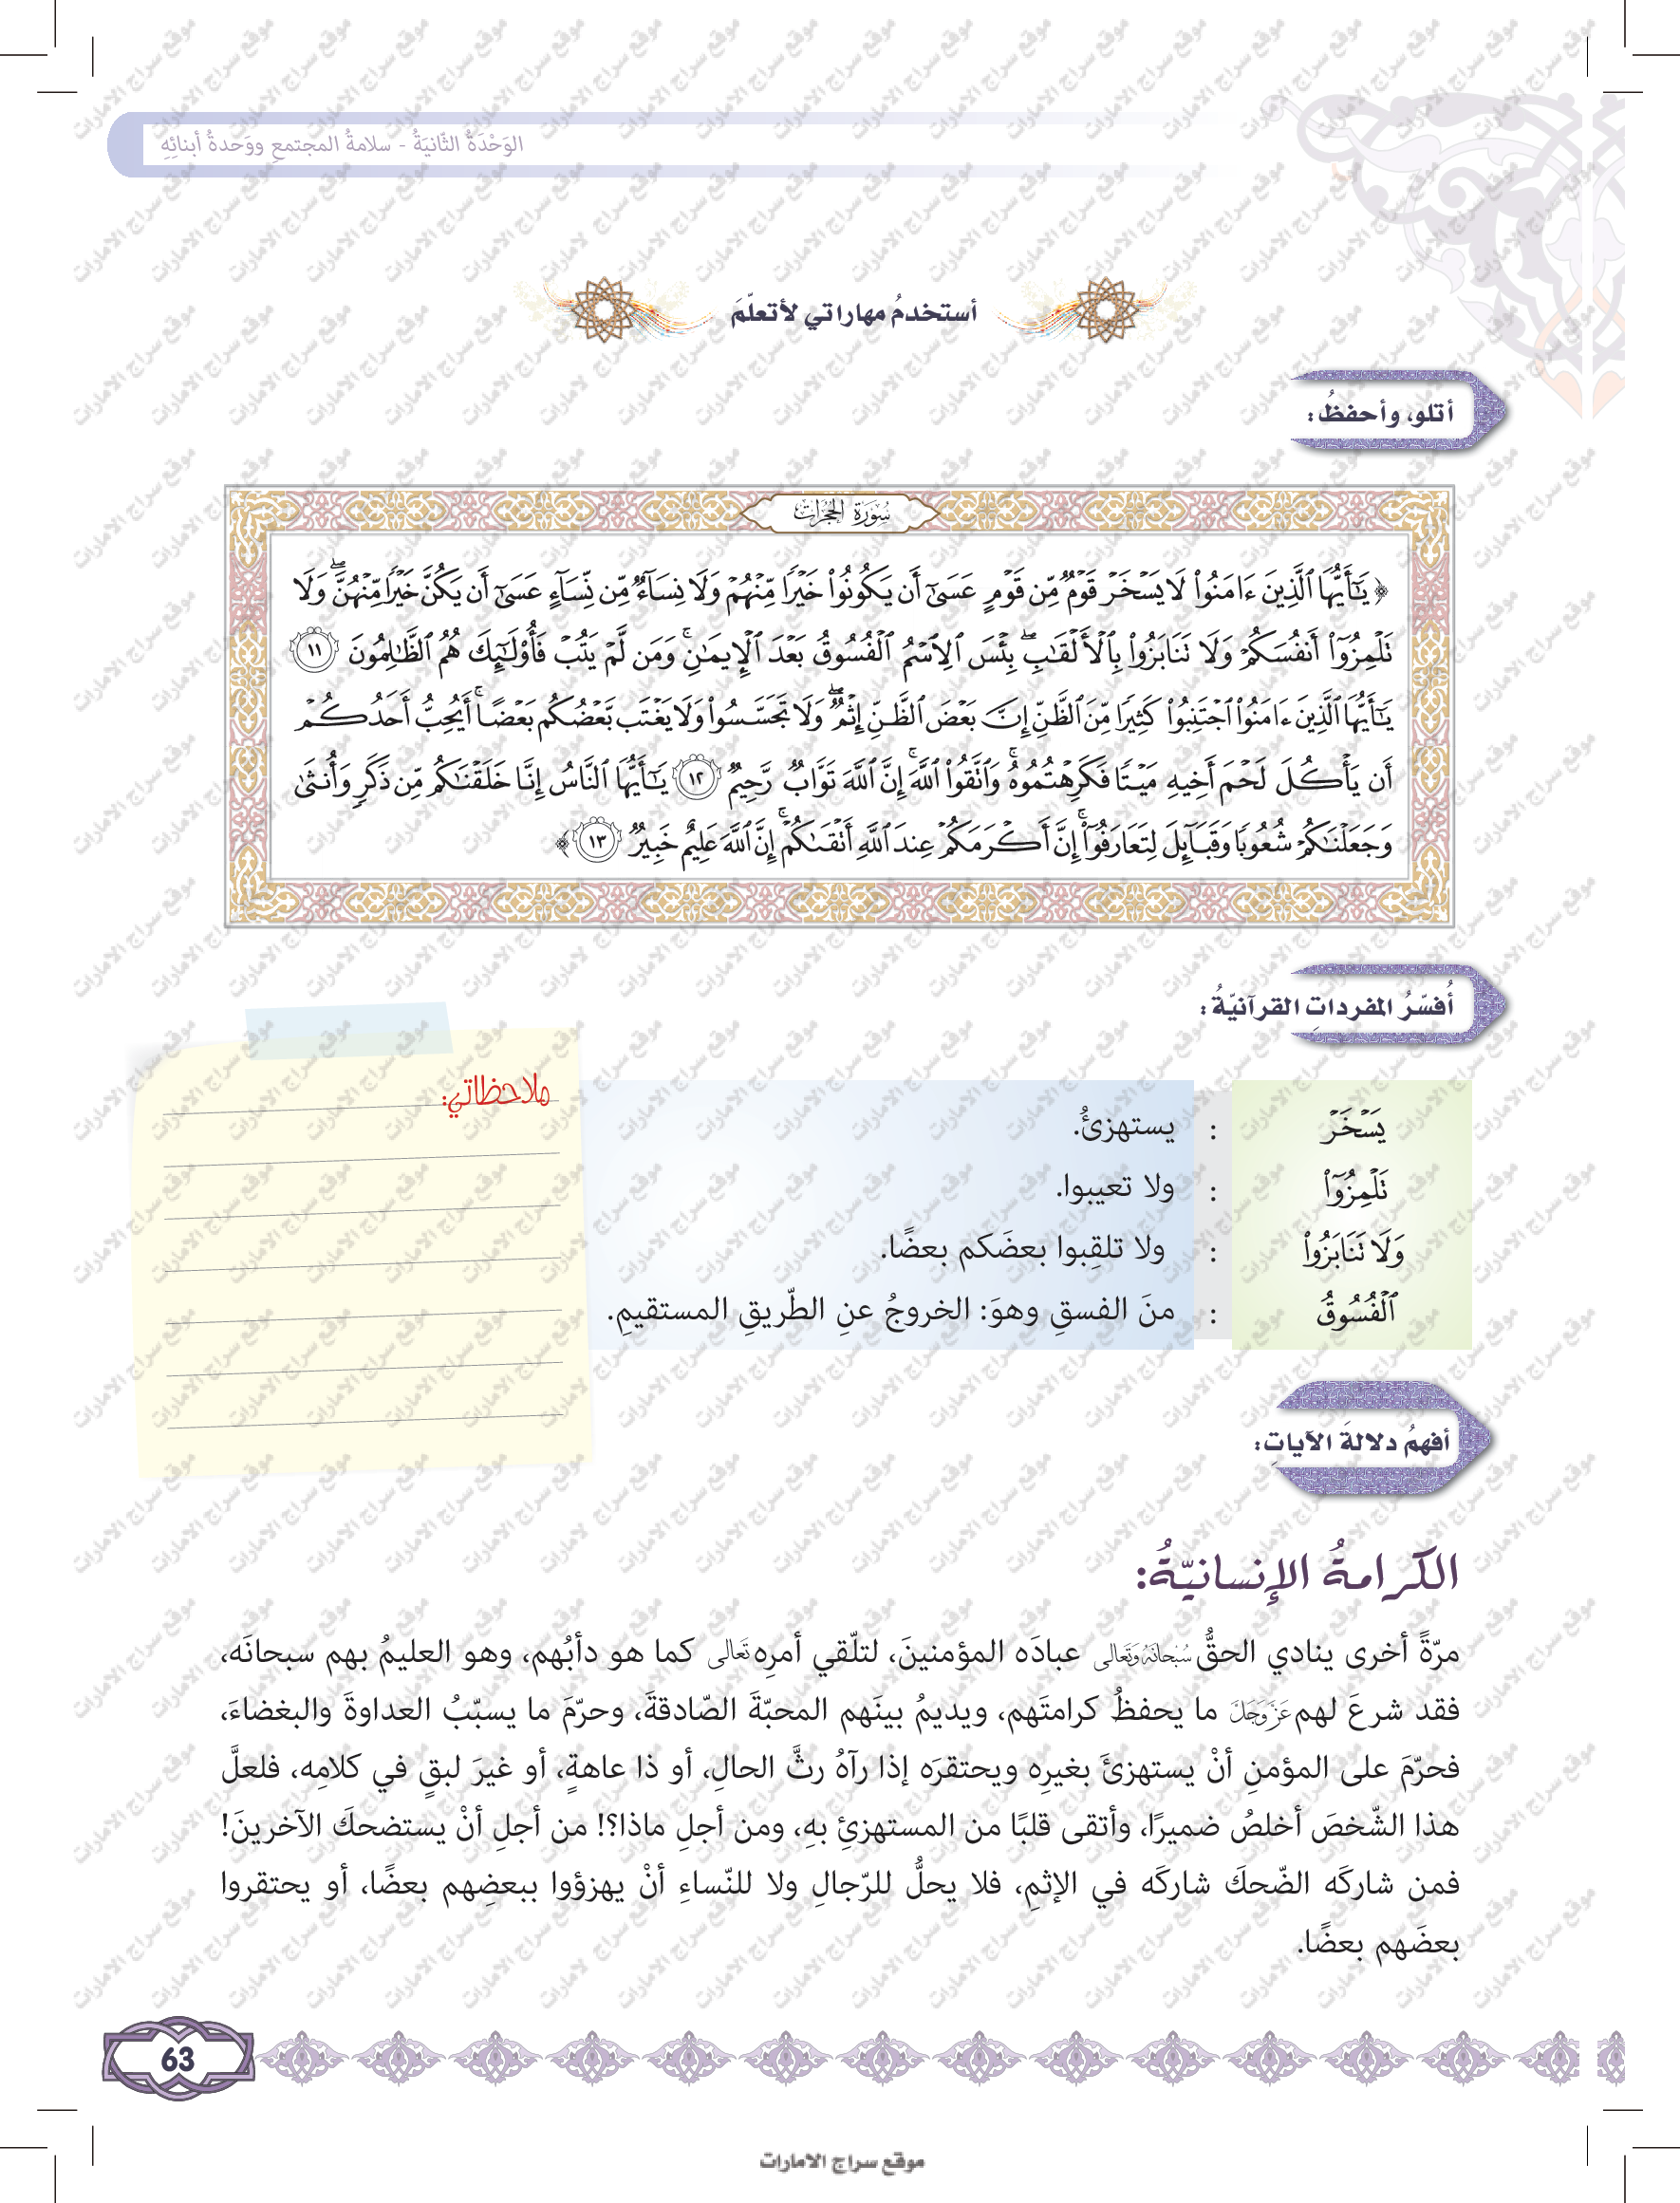 الوَحْدَةُ الثّانيَةُ - سلامةُ المجتمعِ ووَحدةُ أبنائِهِ
أستخدمُ مهاراتي لأتعلّمَ
أتلو، وأحفظُ:
سُورَةُ الحُجُرَات
﴿ يَٰٓأَيُّهَا ٱلَّذِينَ ءَامَنُواْ لَا يَسۡخَرۡ قَوۡمٞ مِّن قَوۡمٍ عَسَىٰٓ أَن يَكُونُواْ خَيۡرٗا مِّنۡهُمۡ وَلَا نِسَآءٞ مِّن نِّسَآءٍ عَسَىٰٓ أَن يَكُنَّ خَيۡرٗا مِّنۡهُنَّۖ وَلَا
تَلۡمِزُوٓاْ أَنفُسَكُمۡ وَلَا تَنَابَزُواْ بِٱلۡأَلۡقَٰبِۖ بِئۡسَ ٱلِٱسۡمُ ٱلۡفُسُوقُ بَعۡدَ ٱلۡإِيمَٰنِۚ وَمَن لَّمۡ يَتُبۡ فَأُوْلَٰٓئِكَ هُمُ ٱلظَّٰلِمُونَ ١١
يَٰٓأَيُّهَا ٱلَّذِينَ ءَامَنُواْ ٱجۡتَنِبُواْ كَثِيرٗا مِّنَ ٱلظَّنِّ إِنَّ بَعۡضَ ٱلظَّنِّ إِثۡمٞۖ وَلَا تَجَسَّسُواْ وَلَا يَغۡتَب بَّعۡضُكُم بَعۡضًاۚ أَيُحِبُّ أَحَدُكُمۡ
أَن يَأۡكُلَ لَحۡمَ أَخِيهِ مَيۡتٗا فَكَرِهۡتُمُوهُۚ وَٱتَّقُواْ ٱللَّهَۚ إِنَّ ٱللَّهَ تَوَّابٞ رَّحِيمٞ ١٢ يَٰٓأَيُّهَا ٱلنَّاسُ إِنَّا خَلَقۡنَٰكُم مِّن ذَكَرٖ وَأُنثَىٰ
وَجَعَلۡنَٰكُمۡ شُعُوبٗا وَقَبَآئِلَ لِتَعَارَفُوٓاْۚ إِنَّ أَكۡرَمَكُمۡ عِندَ ٱللَّهِ أَتۡقَىٰكُمۡۚ إِنَّ ٱللَّهَ عَلِيمٌ خَبِيرٞ ١٣ ﴾
أُفسّرُ المفرداتِ القرآنيّةُ:
ملاحظاتي:
يَسۡخَرۡ : يستهزئُ.
تَلۡمِزُوٓاْ : ولا تعيبوا.
وَلَا تَنَابَزُواْ : ولا تلقِبوا بعضَكم بعضًا.
ٱلۡفُسُوقُ : منَ الفسقِ وهوَ: الخروجُ عنِ الطّريقِ المستقيمِ.
أفهمُ دلالةَ الآياتِ:
الكرامةُ الإنسانيّةُ:
مرّةً أخرى ينادي الحقُّ سُبْحَانَهُ وَتَعَالَى عبادَه المؤمنينَ، لتلّقي أمرِه تَعَالَى كما هو دأبُهم، وهو العليمُ بهم سبحانَه،
فقد شرعَ لهم عَزَّ وَجَلَّ ما يحفظُ كرامتَهم، ويديمُ بينَهم المحبّةَ الصّادقةَ، وحرّمَ ما يسبّبُ العداوةَ والبغضاءَ،
فحرّمَ على المؤمنِ أنْ يستهزئَ بغيرِه ويحتقرَه إذا رآهُ رثَّ الحالِ، أو ذا عاهةٍ، أو غيرَ لبقٍ في كلامِه، فلعلَّ
هذا الشّخصَ أخلصُ ضميرًا، وأتقى قلبًا من المستهزئِ بهِ، ومن أجلِ ماذا؟! من أجلِ أنْ يستضحكَ الآخرينَ!
فمن شاركَه الضّحكَ شاركَه في الإثمِ، فلا يحلُّ للرّجالِ ولا للنّساءِ أنْ يهزؤوا ببعضِهم بعضًا، أو يحتقروا
بعضَهم بعضًا.
63
موقع سراج الامارات